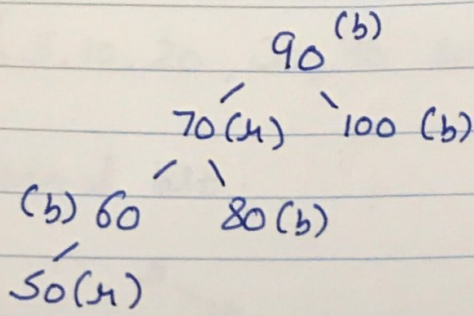 90 (b)
70 (r) 100 (b)
(b) 60 80 (b)
50 (r)